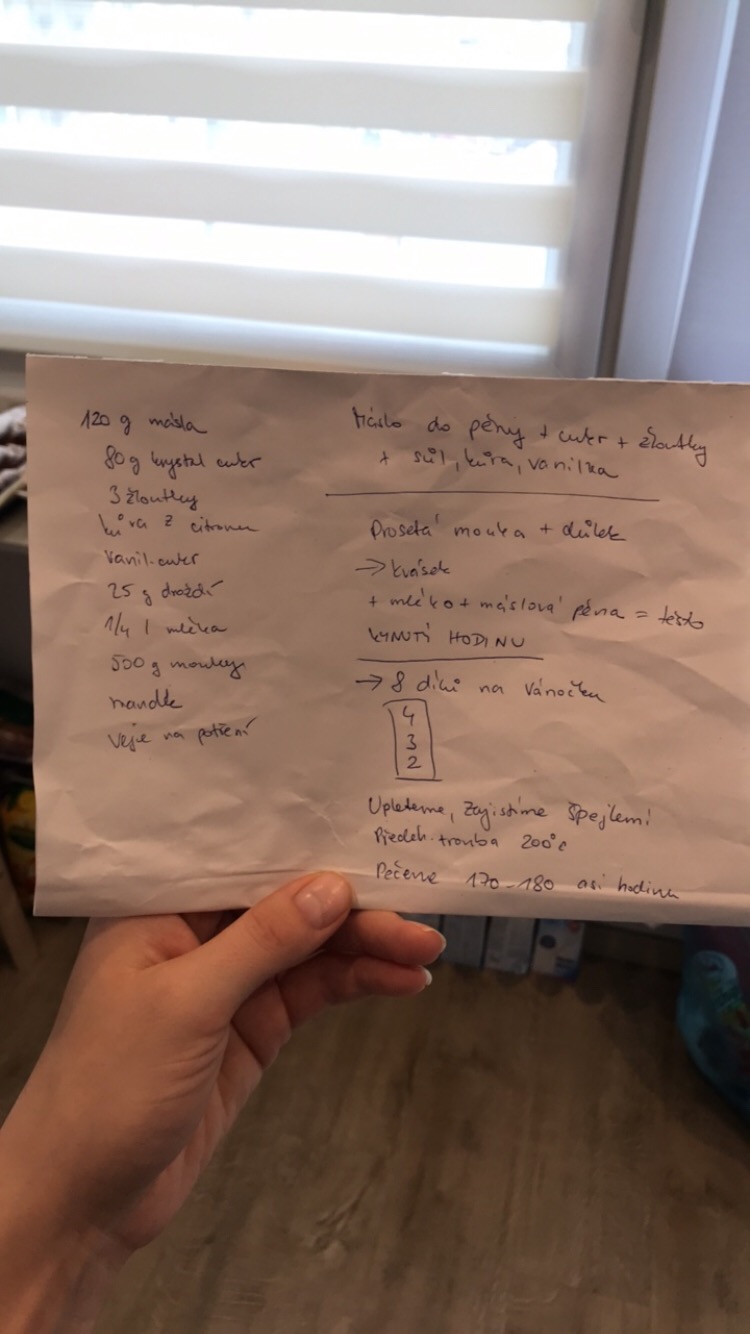 120 g másla
80g krystal cukr
3 žloutky
kůra z citronu
Vanil.cukr
25 g droždí
1/4 l mléka
500 g mouky
mandle
Vejce na potření
Máslo do pěny + cukr + žloutky
+ sůl, kůra, vanilka
Prosetá mouka + důlek
→ kvásek
+ mléko + máslová pěna = těsto
KYNUTÍ HODINU
→ 8 dílů na vánočku
4
3
2
Upleteme, zajistíme špejlemi
Předeh. trouba 200°C
Pečeme 170-180 asi hodinu